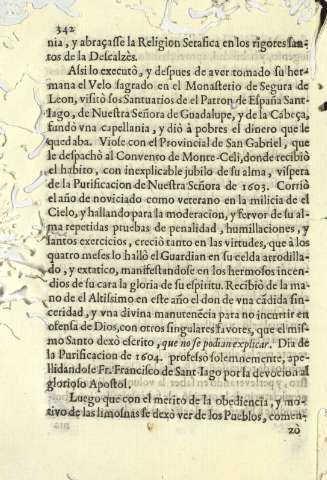 342
nia, y abraçasse la Religion Serafica en los rigores san-
tos de la Descalzès.
Assi lo executò, y despues de aver tomado su her-
mana el Velo sagrado en el Monasterio de Segura de
Leon, visitò sos Santuarios de el Patron de España Sant-
Iago, de Nuestra Señora de Guadalupe, y de la Cabeça,
fundò vna capellania, y diò à pobres el dinero que le
quedaba. Viose con el Provincial de San Gabriel, que
le despachò al Convento de Monte-Celi, donde recibiò
el habito, con inexplicable jubilo de su alma, vispera
de la Purificacion de Nuestra Señora de 1603. Corriò
el año de noviciado como veterano en la milicia de el
Cielo, y hallando para la moderacion, y fervor de su al-
ma repetidas pruebas de penalidad, humillaciones, y
santos exercicios, creciò tanto en las virtudes, que à los
quatro meses lo hallò el Guardian en su celda arrodilla-
do, y extatico, manifestandose en los hermosos incen-
dios de su cara la gloria de su espiritu. Recibiò de la ma-
no de el Altissimo en este año el don de vna càdida sin-
ceridad, y vna divina manutenècia para no incurrir en
ofensa de Dios, con otros singulares favores, que el mis-
mo Santo dexò escrito, que no se podian explicar. Dia de
la Purificacion de 1604. professò solemnemente, ape-
llidandose Fr. Francisco de Sant-Iago por la devocion al
glorioso Apostol.
Luego que con el merito de la obediencia, y mo-
tivo de las limosnas se dexò ver de los Pueblos, comen-
zò